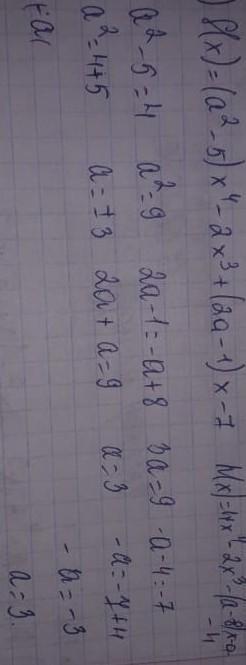 ) f(x)=(a²-5)x⁴-2x³+(2a-1)x-7 h(x)=4x⁴-2x³-(a-8)x-a-4
a²-5=4 a²=9 2a-1=-a+8 3a=9 -a-4=-7
a²=4+5 a=±3 2a+a=9 a=3 -a=-7+4
-a=-3
a=3